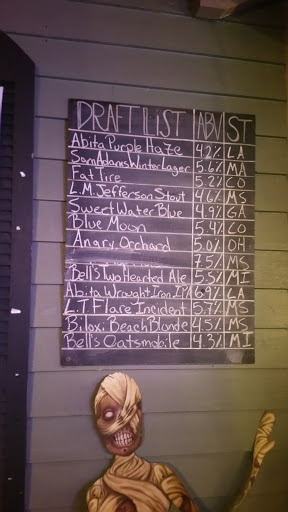 DRAFT LIST ABV ST
Abita Purple Haze 4.2% LA
Sam Adams Winter Lager 5.6% MA
Fat Tire 5.2% CO
L.M. Jefferson Stout 4.6% MS
Sweet Water Blue 4.9% GA
Blue Moon 5.4% CO
Angry Orchard 5.0% OH
7.5% MS
Bell's Two Hearted Ale 5.5% MI
Abita Wrought Iron IPA 6.9%
L.T. Flare Incident 5.7% MS
Biloxi Beach Blonde 4.5% MS
Bell's Oatsmobile 4.3% MI